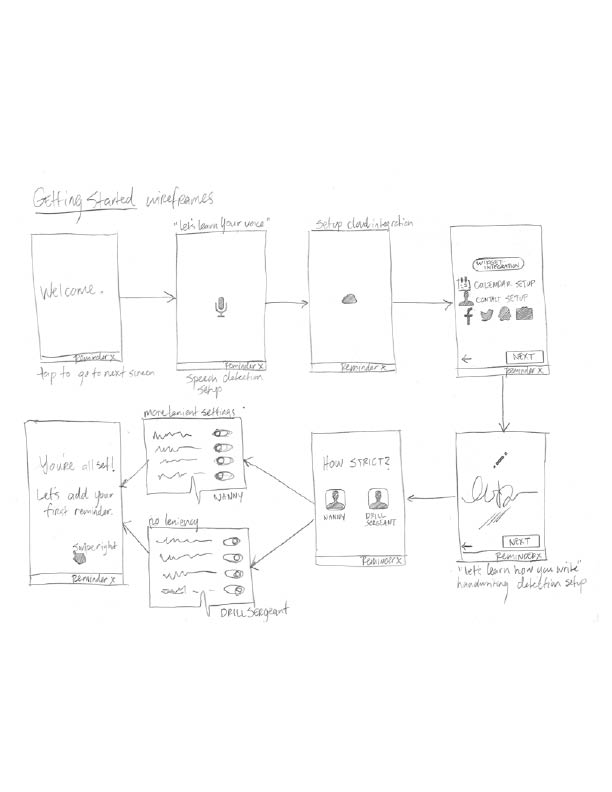 Getting Started wireframes
Welcome.
Reminder X
tap to go to next screen
"Let's learn your voice"
Reminder X
Speech detection
setup
Setup cloud integration
Reminder X
WIDGET
INTEGRATION
CALENDAR SETUP
CONTACT SETUP
NEXT
Reminder X
NEXT
REMINDER X
"Let's learn how you write"
handwriting detection setup
HOW STRICT?
NANNY
DRILL
SERGEANT
REMINDER X
more lenient settings
NANNY
no leniency
DRILL SERGEANT
You're all set!
Let's add your
first reminder.
swipe right
Reminder X